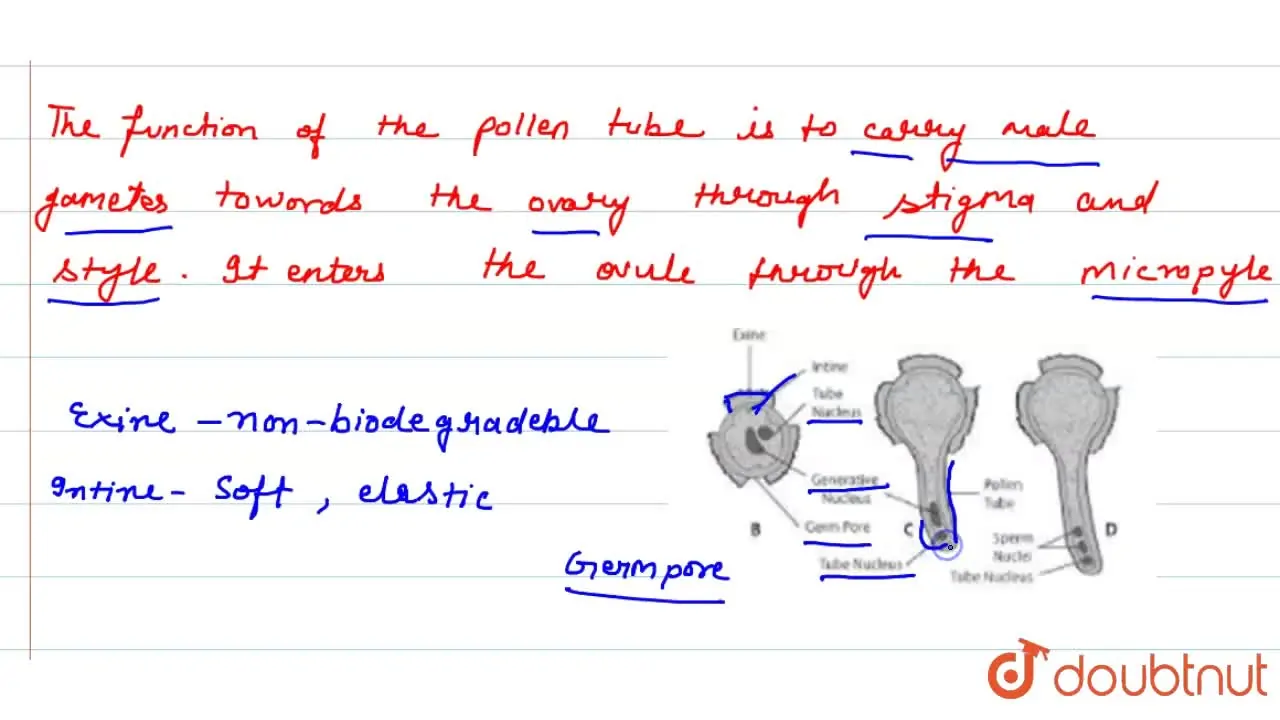 The function of the pollen tube is to carry male
gametes towords the ovary through stigma and
style. It enters the ovule through the micropyle
Exine
Intine
Tube
Nucleus
Exine - non-biodegradeble
Intine - Soft, elastic
Generative
Nucleus
Pollen
Tube
Germ Pore
B
C
D
Sperm
Nuclei
Tube Nucleus
Tube Nucleus
Germ pore
doubtnut